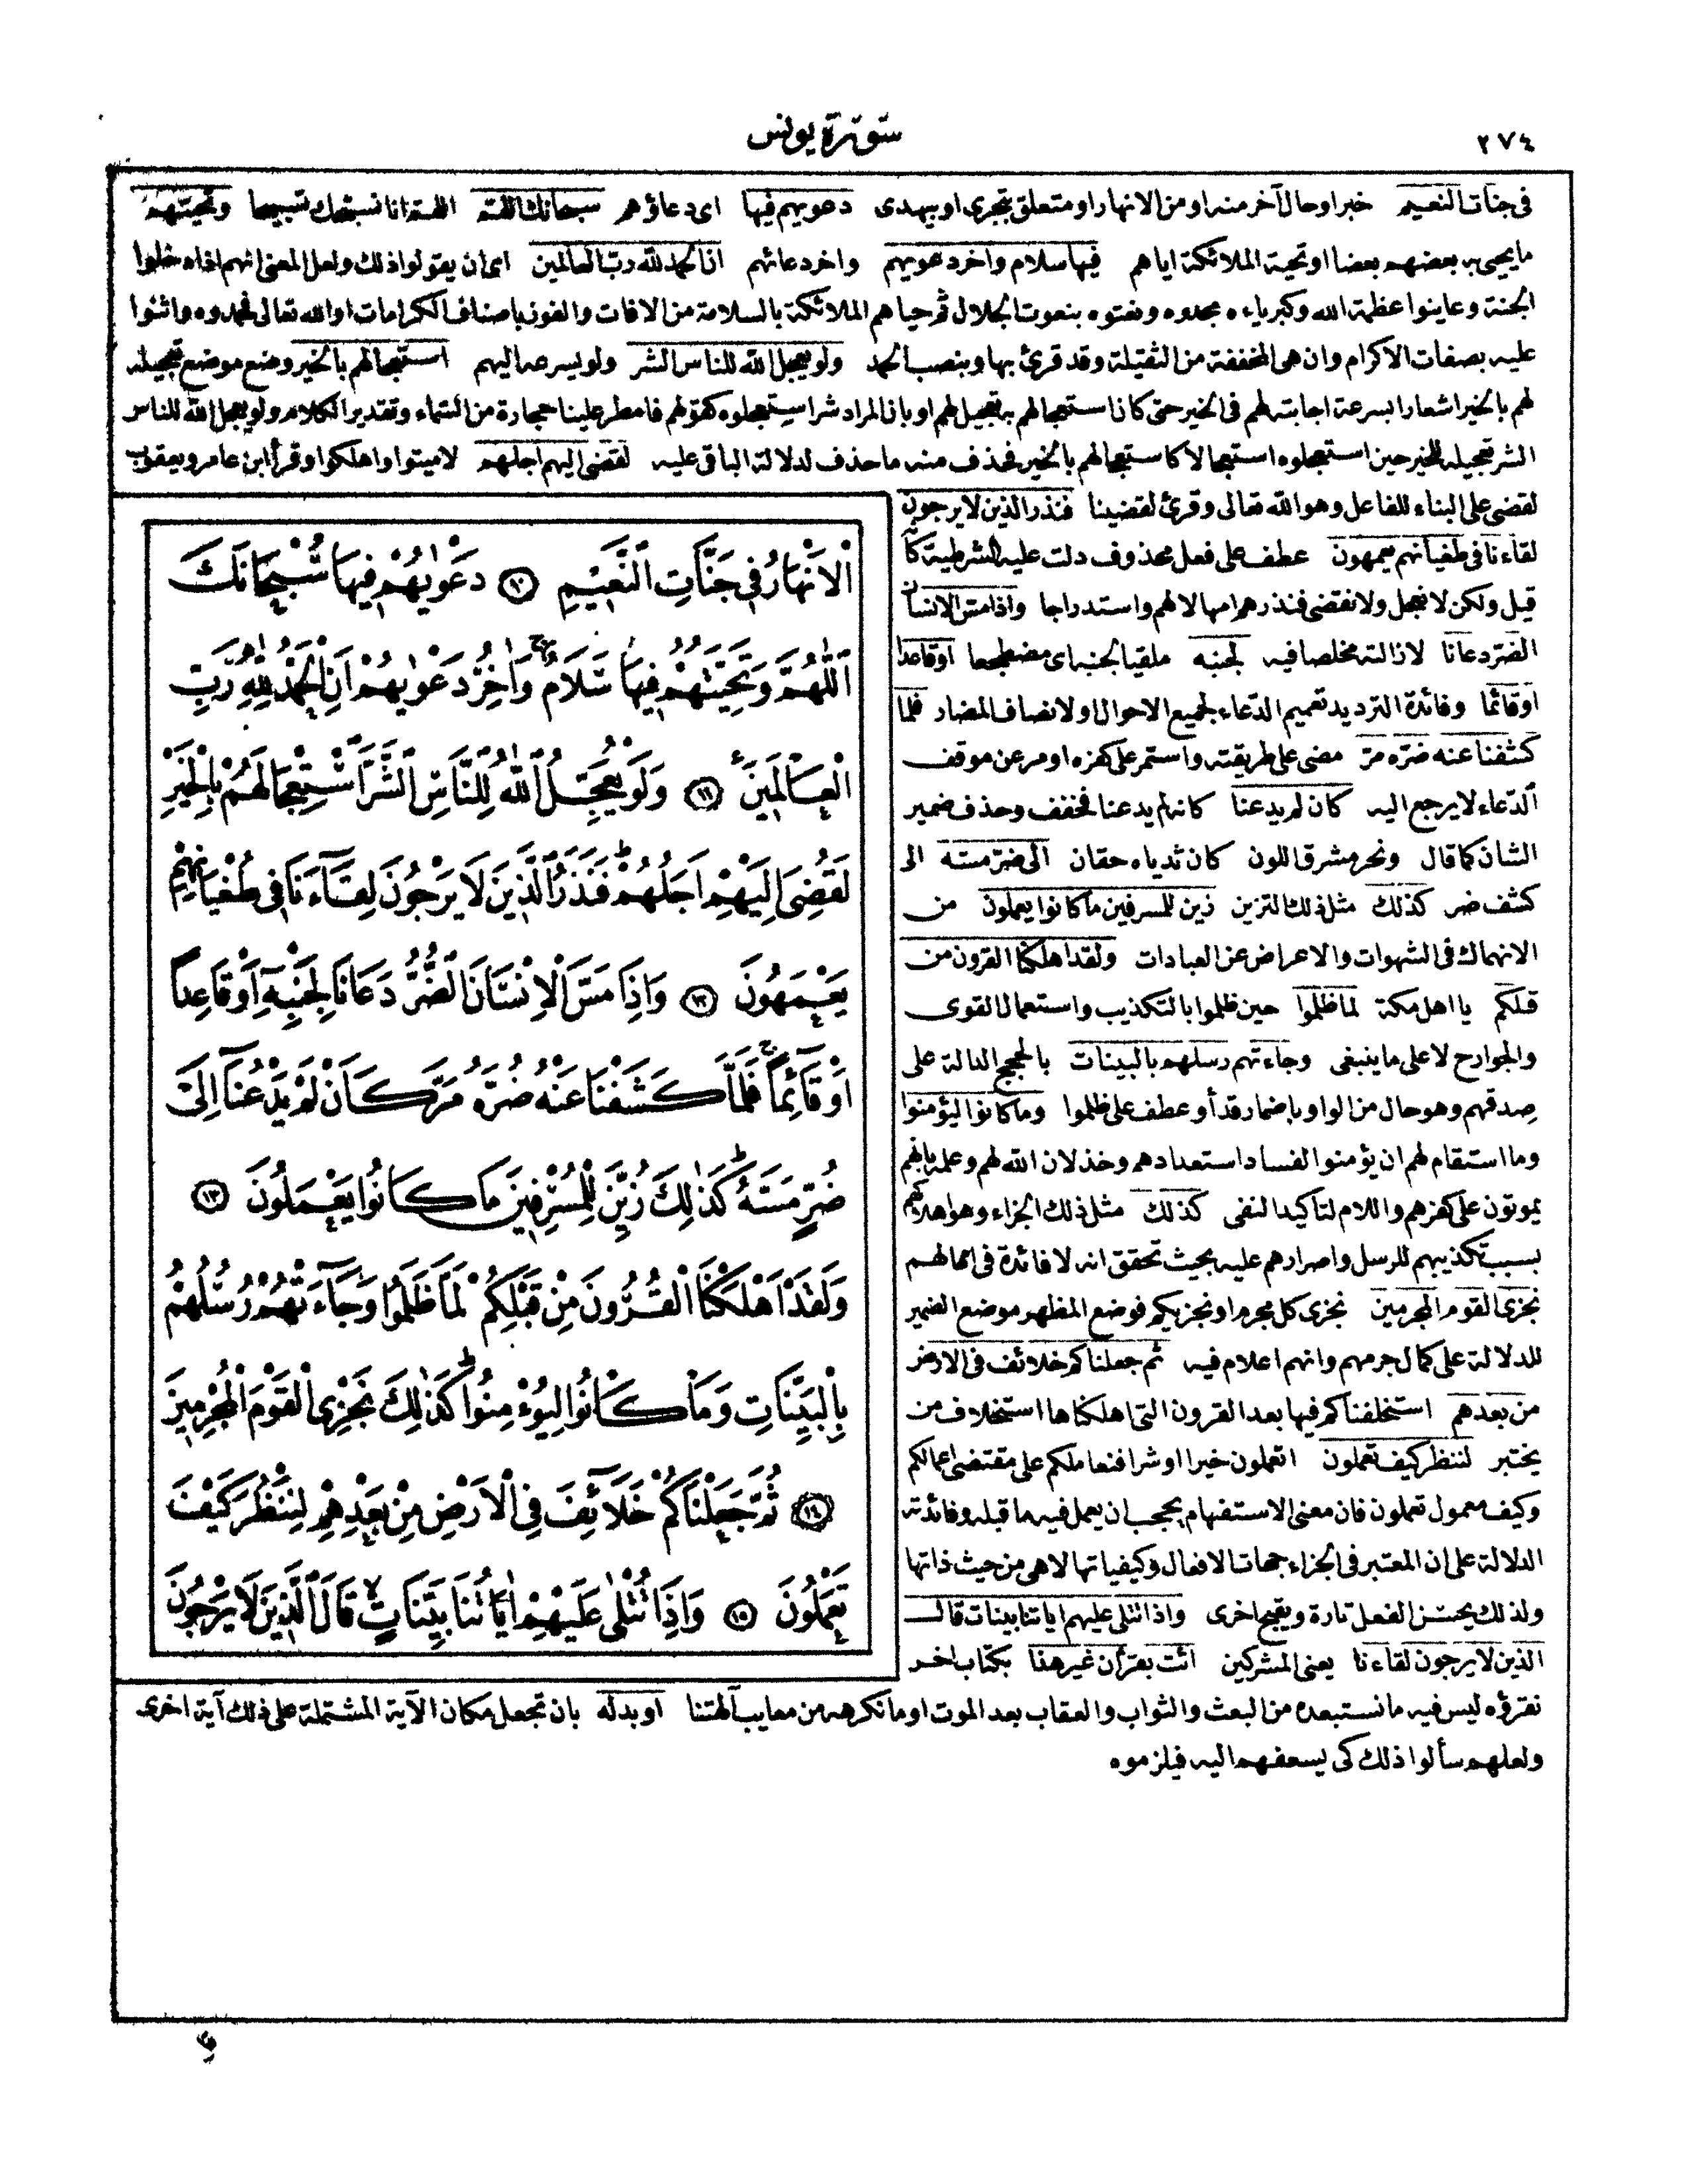 ٢٧٤
سورة يونس
فى جنات النعيم خبر او حال آخر منه او من الانهار او متعلق بتجرى او بيهدى دعويهم فيها اى دعاؤهم سبحانك اللهم اللهم انا نسبحك تسبيحا وتحيتهم
ما يحيى به بعضهم بعضا او تحية الملائكة اياهم فيها سلام واخر دعويهم واخر دعائهم ان الحمد لله رب العالمين اى ان يقولوا ذلك ولعل المعنى انهم اذا دخلوا
الجنة وعاينوا عظمة الله وكبرياءه مجدوه ونعتوه بنعوت الجلال ثم حياهم الملائكة بالسلامة من الافات والفوز باصناف الكرامات او الله تعالى فحمدوه واثنوا
عليه بصفات الاكرام وان هى المخففة من الثقيلة وقد قرئ بها وبنصب الحمد ولو يعجل الله للناس الشر ولو يسرعه اليهم استعجالهم بالخير وضع موضع تعجيله
لهم بالخير اشعارا بسرعة اجابته لهم فى الخير حتى كان استعجالهم به تعجيل لهم او بان المراد شر استعجلوه كقولهم فامطر علينا حجارة من السماء وتقدير الكلام ولو يعجل الله للناس
الشر تعجيله للخير حين استعجلوه استعجالا كاستعجالهم بالخير فحذف منه ما حذف لدلالة الباقى عليه لقضى اليهم اجلهم لاميتوا واهلكوا وقرأ ابن عامر ويعقوب
لقضى على البناء للفاعل وهو الله تعالى وقرئ لقضينا فنذر الذين لا يرجون
لقاءنا فى طغيانهم يعمهون عطف على فعل محذوف دلت عليه الشرطية كأنه
قيل ولكن لا نعجل ولا نقضى فنذرهم امهالا لهم واستدراجا واذا مس الانسان
الضر دعانا لازالته مخلصا فيه لجنبه ملقيا لجنبه اى مضطجعا او قاعدا
او قائما وفائدة الترديد تعميم الدعاء لجميع الاحوال او لاصناف المضار فلما
كشفنا عنه ضره مر مضى على طريقته واستمر على كفره او مر عن موقف
الدعاء لا يرجع اليه كان لم يدعنا كانه لم يدعنا فخفف وحذف ضمير
الشان كما قال ونحر مشرق اللون كان ثدياه حقان الى ضر مسه الى
كشف ضر كذلك مثل ذلك التزين زين للمسرفين ما كانوا يعملون من
الانهماك فى الشهوات والاعراض عن العبادات ولقد اهلكنا القرون من
قبلكم يا اهل مكة لما ظلموا حين ظلموا بالتكذيب واستعمال القوى
والجوارح لا على ما ينبغى وجاءتهم رسلهم بالبينات بالحجج الدالة على
صدقهم وهو حال من الواو باضمار قد أو عطف على ظلموا وما كانوا ليؤمنوا
وما استقام لهم ان يؤمنوا لفساد استعدادهم وخذلان الله لهم وعلمه بانهم
يموتون على كفرهم واللام لتاكيد النفى كذلك مثل ذلك الجزاء وهو اهلاكهم
بسبب تكذيبهم للرسل واصرارهم عليه بحيث تحقق انه لا فائدة فى امهالهم
نجزى القوم المجرمين نجزى كل مجرم او نجزيكم فوضع المظهر موضع الضمير
للدلالة على كمال جرمهم وانهم اعلام فيه ثم جعلناكم خلائف فى الارض
من بعدهم استخلفناكم فيها بعد القرون التى اهلكناها استخلاف من
يختبر لننظر كيف تعملون اتعملون خيرا او شرا فنعاملكم على مقتضى اعمالكم
وكيف معمول تعملون فان معنى الاستفهام يحجب ان يعمل فيه ما قبله وفائدته
الدلالة على ان المعتبر فى الجزاء جهات الافعال وكيفياتها لا هى من حيث ذاتها
ولذلك يحسن الفعل تارة ويقبح اخرى واذا تتلى عليهم اياتنا بينات قال
الذين لا يرجون لقاءنا يعنى المشركين ائت بقرأن غير هذا بكتاب اخر
نقرؤه ليس فيه ما نستبعده من البعث والثواب والعقاب بعد الموت او ما نكرهه من معايب آلهتنا او بدله بان تجعل مكان الآية المشتملة على ذلك آية اخرى
ولعلهم سألوا ذلك كى يسعفهم اليه فيلزموه
الْاَنْهَارُ فِى جَنَّاتِ النَّعِيمِ ١٠ دَعْوٰيهُمْ فِيهَا سُبْحَانَكَ
اللّٰهُمَّ وَتَحِيَّتُهُمْ فِيهَا سَلَامٌ وَاٰخِرُ دَعْوٰيهُمْ اَنِ الْحَمْدُ لِلّٰهِ رَبِّ
الْعَالَمِينَ ١١ وَلَوْ يُعَجِّلُ اللّٰهُ لِلنَّاسِ الشَّرَّ اسْتِعْجَالَهُمْ بِالْخَيْرِ
لَقُضِىَ اِلَيْهِمْ اَجَلُهُمْ فَنَذَرُ الَّذِينَ لَا يَرْجُونَ لِقَآءَنَا فِى طُغْيَانِهِمْ
يَعْمَهُونَ ١٢ وَاِذَا مَسَّ الْاِنْسَانَ الضُّرُّ دَعَانَا لِجَنْبِهٓ اَوْ قَاعِدًا
اَوْ قَآئِمًا فَلَمَّا كَشَفْنَا عَنْهُ ضُرَّهُ مَرَّ كَاَنْ لَمْ يَدْعُنَآ اِلٰى
ضُرٍّ مَسَّهُ كَذٰلِكَ زُيِّنَ لِلْمُسْرِفِينَ مَا كَانُوا يَعْمَلُونَ ١٣
وَلَقَدْ اَهْلَكْنَا الْقُرُونَ مِنْ قَبْلِكُمْ لَمَّا ظَلَمُوا وَجَآءَتْهُمْ رُسُلُهُمْ
بِالْبَيِّنَاتِ وَمَا كَانُوا لِيُؤْمِنُوا كَذٰلِكَ نَجْزِى الْقَوْمَ الْمُجْرِمِينَ
١٤ ثُمَّ جَعَلْنَاكُمْ خَلَآئِفَ فِى الْاَرْضِ مِنْ بَعْدِهِمْ لِنَنْظُرَ كَيْفَ
تَعْمَلُونَ ١٥ وَاِذَا تُتْلٰى عَلَيْهِمْ اٰيَاتُنَا بَيِّنَاتٍ قَالَ الَّذِينَ لَا يَرْجُونَ